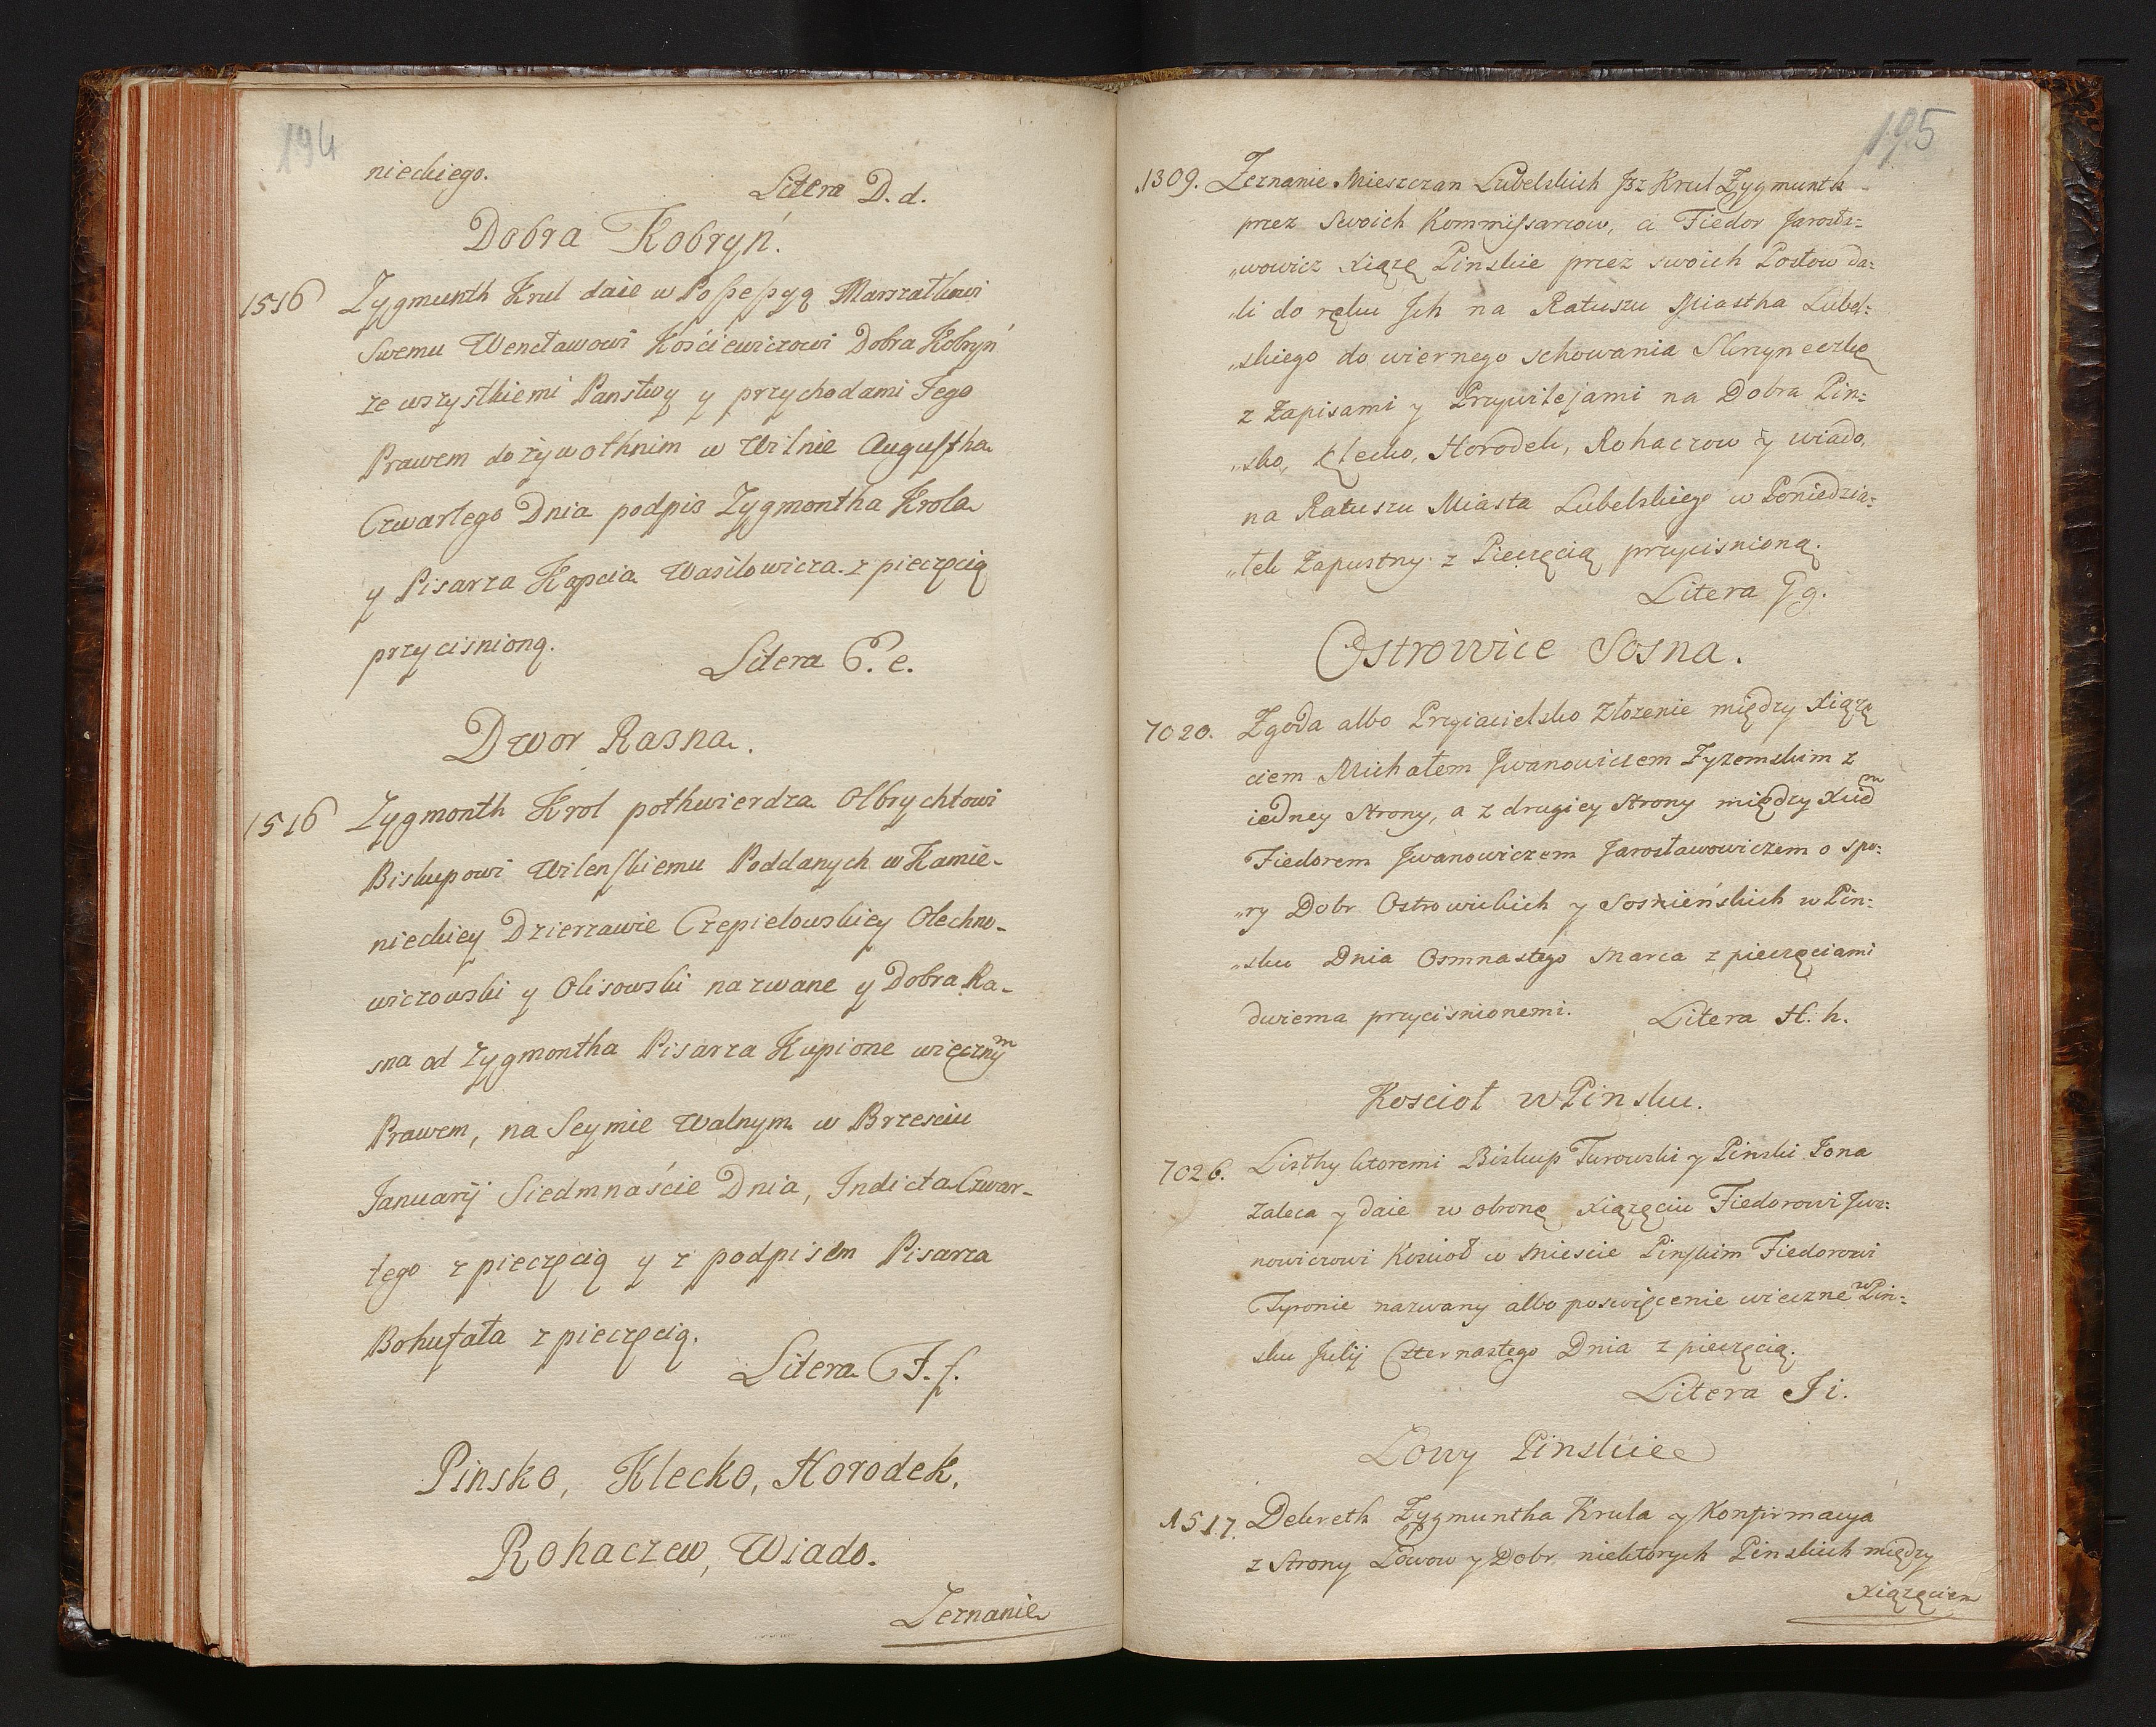 194
nieckiego.
Litera D. d.
Dobra Kobryń.
1516 Zygmunth Krul daie w Possessyą Marszałkowi
Swemu Wencławowi Kościewiczowi Dobra Kobryń
ze wszystkiemi Panstwy y przychodami Jego
Prawem dożywothnim w Wilnie Augustha
Czwartego Dnia podpis Zygmontha Krola
y Pisarza Kopcia Wasilowicza z pieczęcią
przycisnioną.
Litera E. e.
Dwor Rasna.
1516 Zygmonth Krol pothwierdza Olbrychtowi
Biskupowi Wilenskiemu Poddanych w Kamie-
nieckiey Dzierzawie Czepielowskiey Olechno-
wiczowski y Olisowski nazwane y Dobra Ra-
sna od Zygmontha Pisarza Kupione wiecznym
Prawem, na Seymie Walnym w Brzesciu
Januarij Siedmnaście Dnia, Indicta Czwar-
tego z pieczęcią y z podpisem Pisarza
Bohufała z pieczęcią.
Litera F. f.
Pinsko, Klecko, Horodek,
Rohaczew, Wiado.
Zeznanie
195
1309. Zeznanie Mieszczan Lubelskich Jsz Krul Zygmunth
przez Swoich Kommissarzow, a Fiedor Jarosła=
„wowicz Xiążę Pinskie przez swoich Posłow da=
„li do ręku Jch na Ratuszu Miastha Lubel=
„skiego do wiernego schowania Skrzyneczkę
z Zapisami y Przywilejami na Dobra Pin=
„sko, Klecko, Horodek, Rohaczow y wiado,
na Ratuszu Miasta Lubelskiego w Poniedzia=
„łek Zapustny z Pieczęcią przycisnioną.
Litera Gg.
Ostrowice Sosna.
7020. Zgoda albo Przyiacielsko Złożenie między Xiążę
ciem Michałem Jwanowiczem Zyzemskim z
iedney Strony, a z drugiey Strony między Xiem
Fiedorem Jwanowiczem Jarosławowiczem o spo=
„ry Dobr Ostrowickich y Sosnieńskich w Pin=
„sku Dnia Osmnastego Marca z pieczęciami
dwiema przycisnionemi. Litera H. h.
Koscioł w Pinsku.
7026. Listhy ktoremi Biskup Turowski y Pinski Jona
zaleca y daie w obronę Xiążęciu Fiedorowi Jwa=
nowiczowi Koscioł w Mieście Pinskim Fiedorowi
Tyronie nazwany albo poswięcenie wieczne w Pin=
sku Julij Czternastego Dnia z pieczęcią.
Litera Ji.
Łowy Pinskie
1517. Dekreth Zygmuntha Krula y Konfirmacya
z Strony Łowow y Dobr niektorych Pinskich między
Xiążęciem